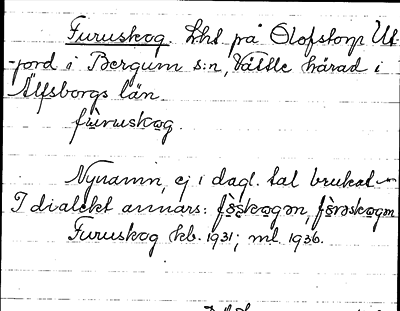 Furuskog. Lht på Olofstorp Ut-
-jord i Bergum s:n, Vättle härad i
Älfsborgs län.
fùruskog.
Nynamn, ej i dagl. tal brukat
I dialekt annars:
Furuskog kb. 1931; ml 1936.